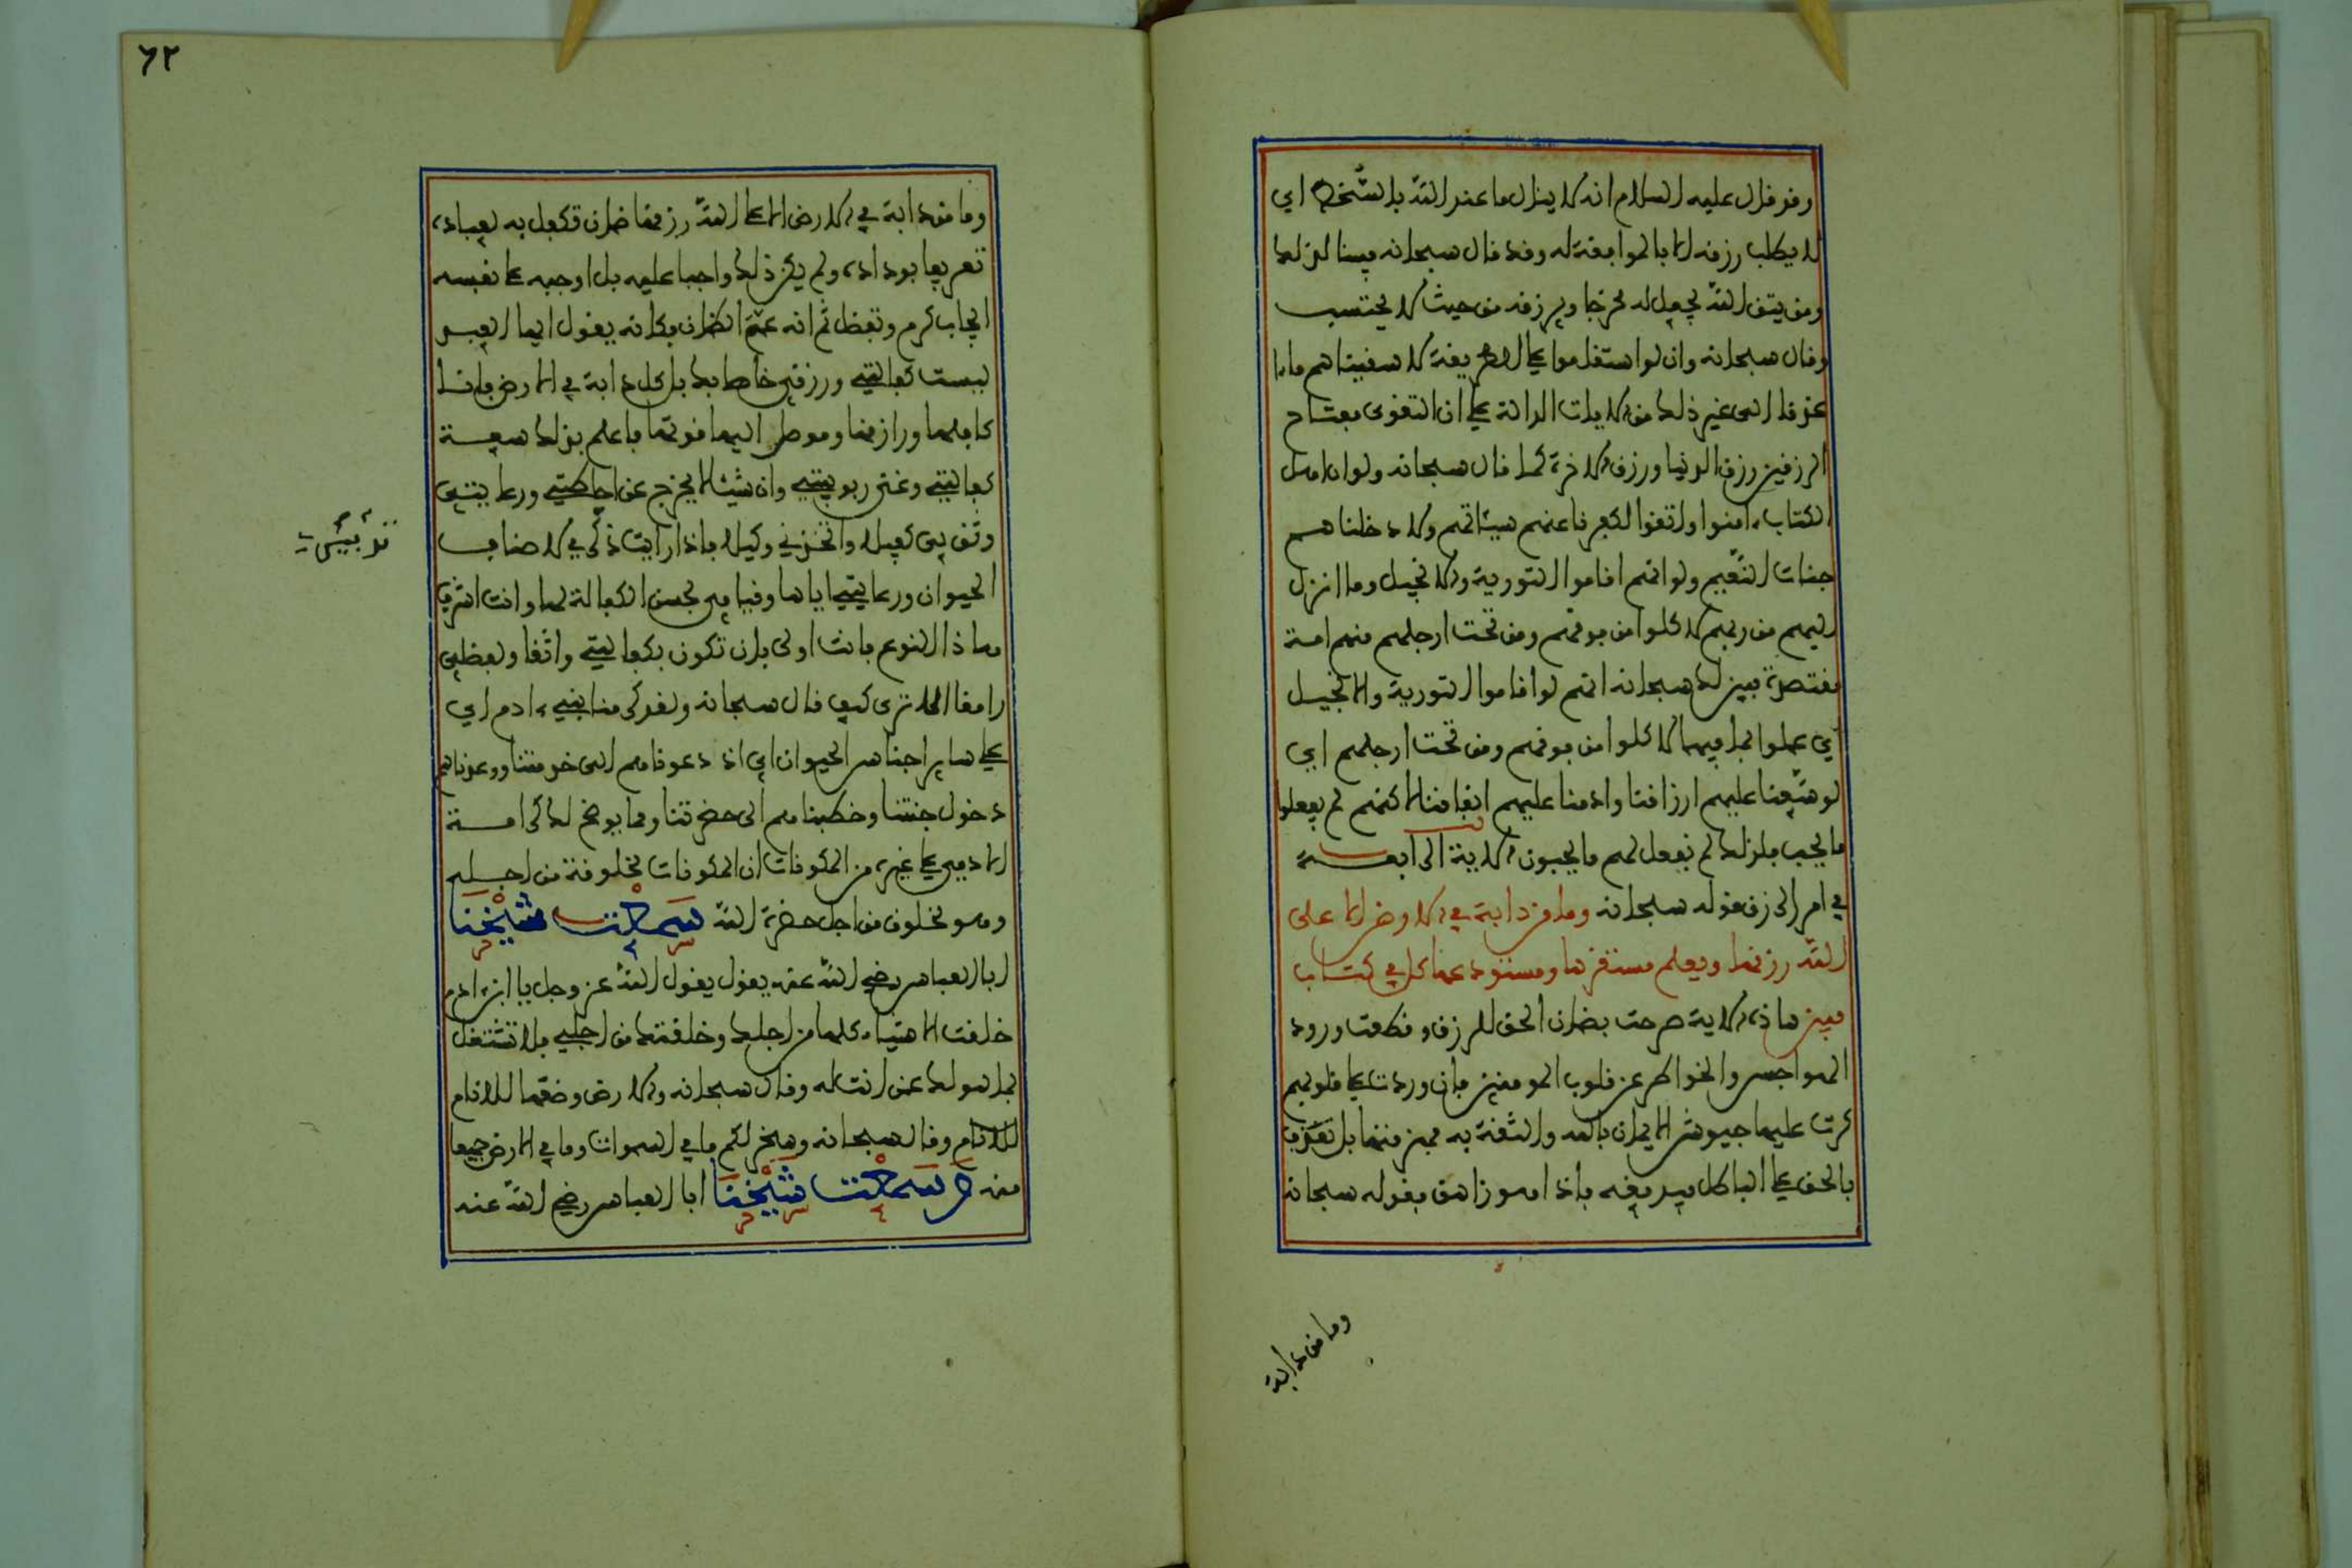 وقد قال عليه السلام انه لا ينال ما عند الله بالسخط اي
لا يطلب رزقه الا بالموافقة له وقد قال سبحانه مبينا لذلك
ومن يتق الله يجعل له مخرجا ويرزقه من حيث لا يحتسب
وقال سبحانه وان لو استقاموا على الطريقة لاسقيناهم ماء
غدقا الى غير ذلك من الايات الدالة على ان التقوى مفتاح
الرزقين رزق الدنيا ورزق الاخرة كما قال سبحانه ولو ان اهل
الكتاب ءامنوا واتقوا لكفرنا عنهم سيئاتهم ولادخلناهم
جنات النعيم ولو انهم اقاموا التورية والانجيل وما انزل
اليهم من ربهم لاكلوا من فوقهم ومن تحت ارجلهم منهم امة
مقتصدة فبين لك سبحانه انهم لو اقاموا التورية والانجيل
اي عملوا بما فيهما لاكلوا من فوقهم ومن تحت ارجلهم اي
لوسعنا عليهم ارزاقنا وادمنا عليهم انفاقنا لاكنهم لم يفعلوا
ما نحب فلذلك لم نفعل لهم ما يحبون الاية الرابعة
في امر الرزق قوله سبحانه وما من دابة في الارض الا على
الله رزقها ويعلم مستقرها ومستودعها كل في كتاب
مبين هاذه الاية صرحت بضمان الحق للرزق وقطعت ورود
الهواجس والخواطر عن قلوب المومنين فان وردت على قلوبهم
كرت عليها جيوش الايمان بالله والثقة به فهزمتها بل نقذف
بالحق على الباطل فيدمغه فاذا هو زاهق فقوله سبحانه
وما من دابة
٦٢
وما من دابة في الارض الا على الله رزقها ضمان تكفل به لعباده
تعريفا بوداده ولم يكن ذلك واجبا عليه بل اوجبه على نفسه
ايجاب كرم وتفضل ثم انه عمم الضمان فكانه يقول ايها العبد
ليست كفالتي ورزقي خاصا بك بل كل دابة في الارض فانا
كافلها ورازقها وموصل اليها قوتها فاعلم بذلك سعة
كفالتي وغنى ربوبيتي وان شيئا لا يخرج عن احاطتي ورعايتي
وثق بي كفيلا واتخذني وكيلا فاذا رايت ذكري لاصناف
الحيوان ورعايتي اياها وقيامي بحسن الكفالة لها وانت اشرف
هاذا النوع فانت اولى بان تكون بكفالتي واثقا ولفضلي
رامقا الا ترى كيف قال سبحانه ولقد كرمنا بني ءادم اي
على ساير اجناس الحيوان اي اذ دعوناهم الى خدمتنا ووعدناهم
دخول جنتنا وخطبناهم الى حضرتنا ومما يوضح لك كرامة
الادمي على غيره من المكونات ان المكونات مخلوقة من اجله
وهو مخلوق من اجل حضرة الله سمعت شيخنا
ابا العباس رضي الله عنه يقول يقول الله عز وجل يا ابن ءادم
خلقت الاشياء كلها من اجلك وخلقتك من اجلي فلا تشتغل
بما هو لك عمن انت له وقال سبحانه والارض وضعها للانام
للانام وقال سبحانه وسخر لكم ما في السموات وما في الارض جميعا
منه و سمعت شيخنا ابا العباس رضي الله عنه